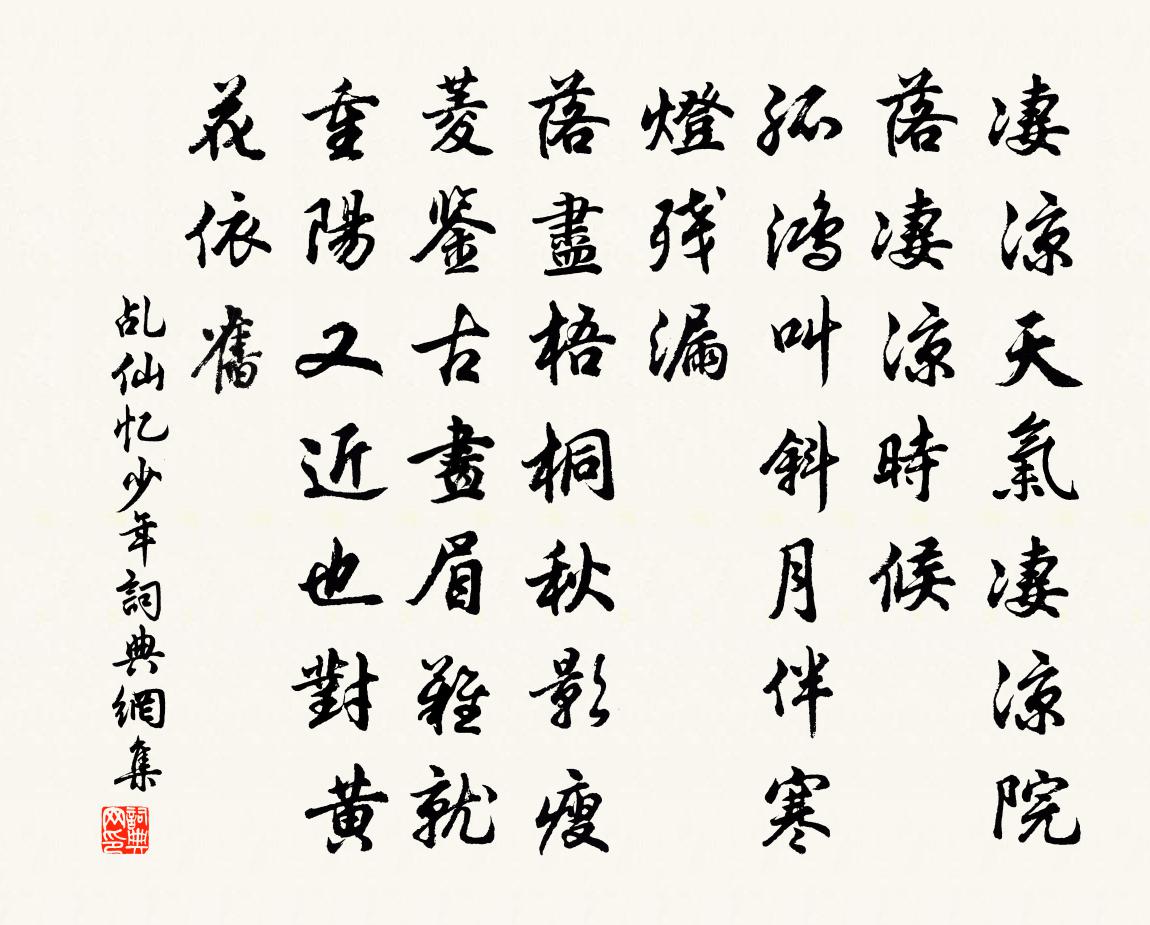 凄涼天氣凄涼院
落凄涼時候
孤鴻叫斜月伴寒
燈残漏
落盡梧桐秋影瘦
菱鉴古畫眉難就
重陽又近也對黄
花依舊
乩仙忆少年詞典網集
詞典网印